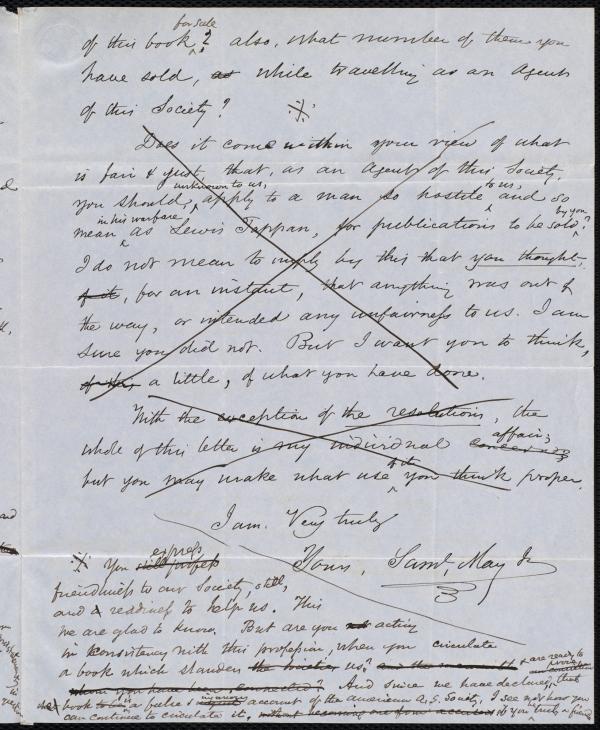 for sale
of this book? also, what number of them you
have sold, as while travelling as an Agent
of this Society? ·X·
Does it come within your view of what
is fair & just, that, as an Agent of this Society,
unknown to us, to us,
you should, apply to a man so hostile and so
in his warfare by you
mean as Lewis Tappan, for publications to be sold?
I do not mean to imply by this that you thought,
for an instant, that anything was out of
the way, or intended any unfairness to us. I am
sure you did not. But I want you to think,
a little, of what you have done.
With the exception of the resolutions, the
affair;
whole of this letter is my individual concern
of it
but you may make what use you think proper.
I am. Very truly
Yours, Saml. May Jr
express
·X· You still profess
friendliness to our Society, still,
and a readiness to help us. This
we are glad to know. But are you not acting
in consistency with this profession, when you circulate
& are ready to
prove
a book which slanders the Society us?
And since we have declared that
book to be a false & injurious account of the American A. S. Society, I see not how you
can continue to circulate it, if you truly a friend